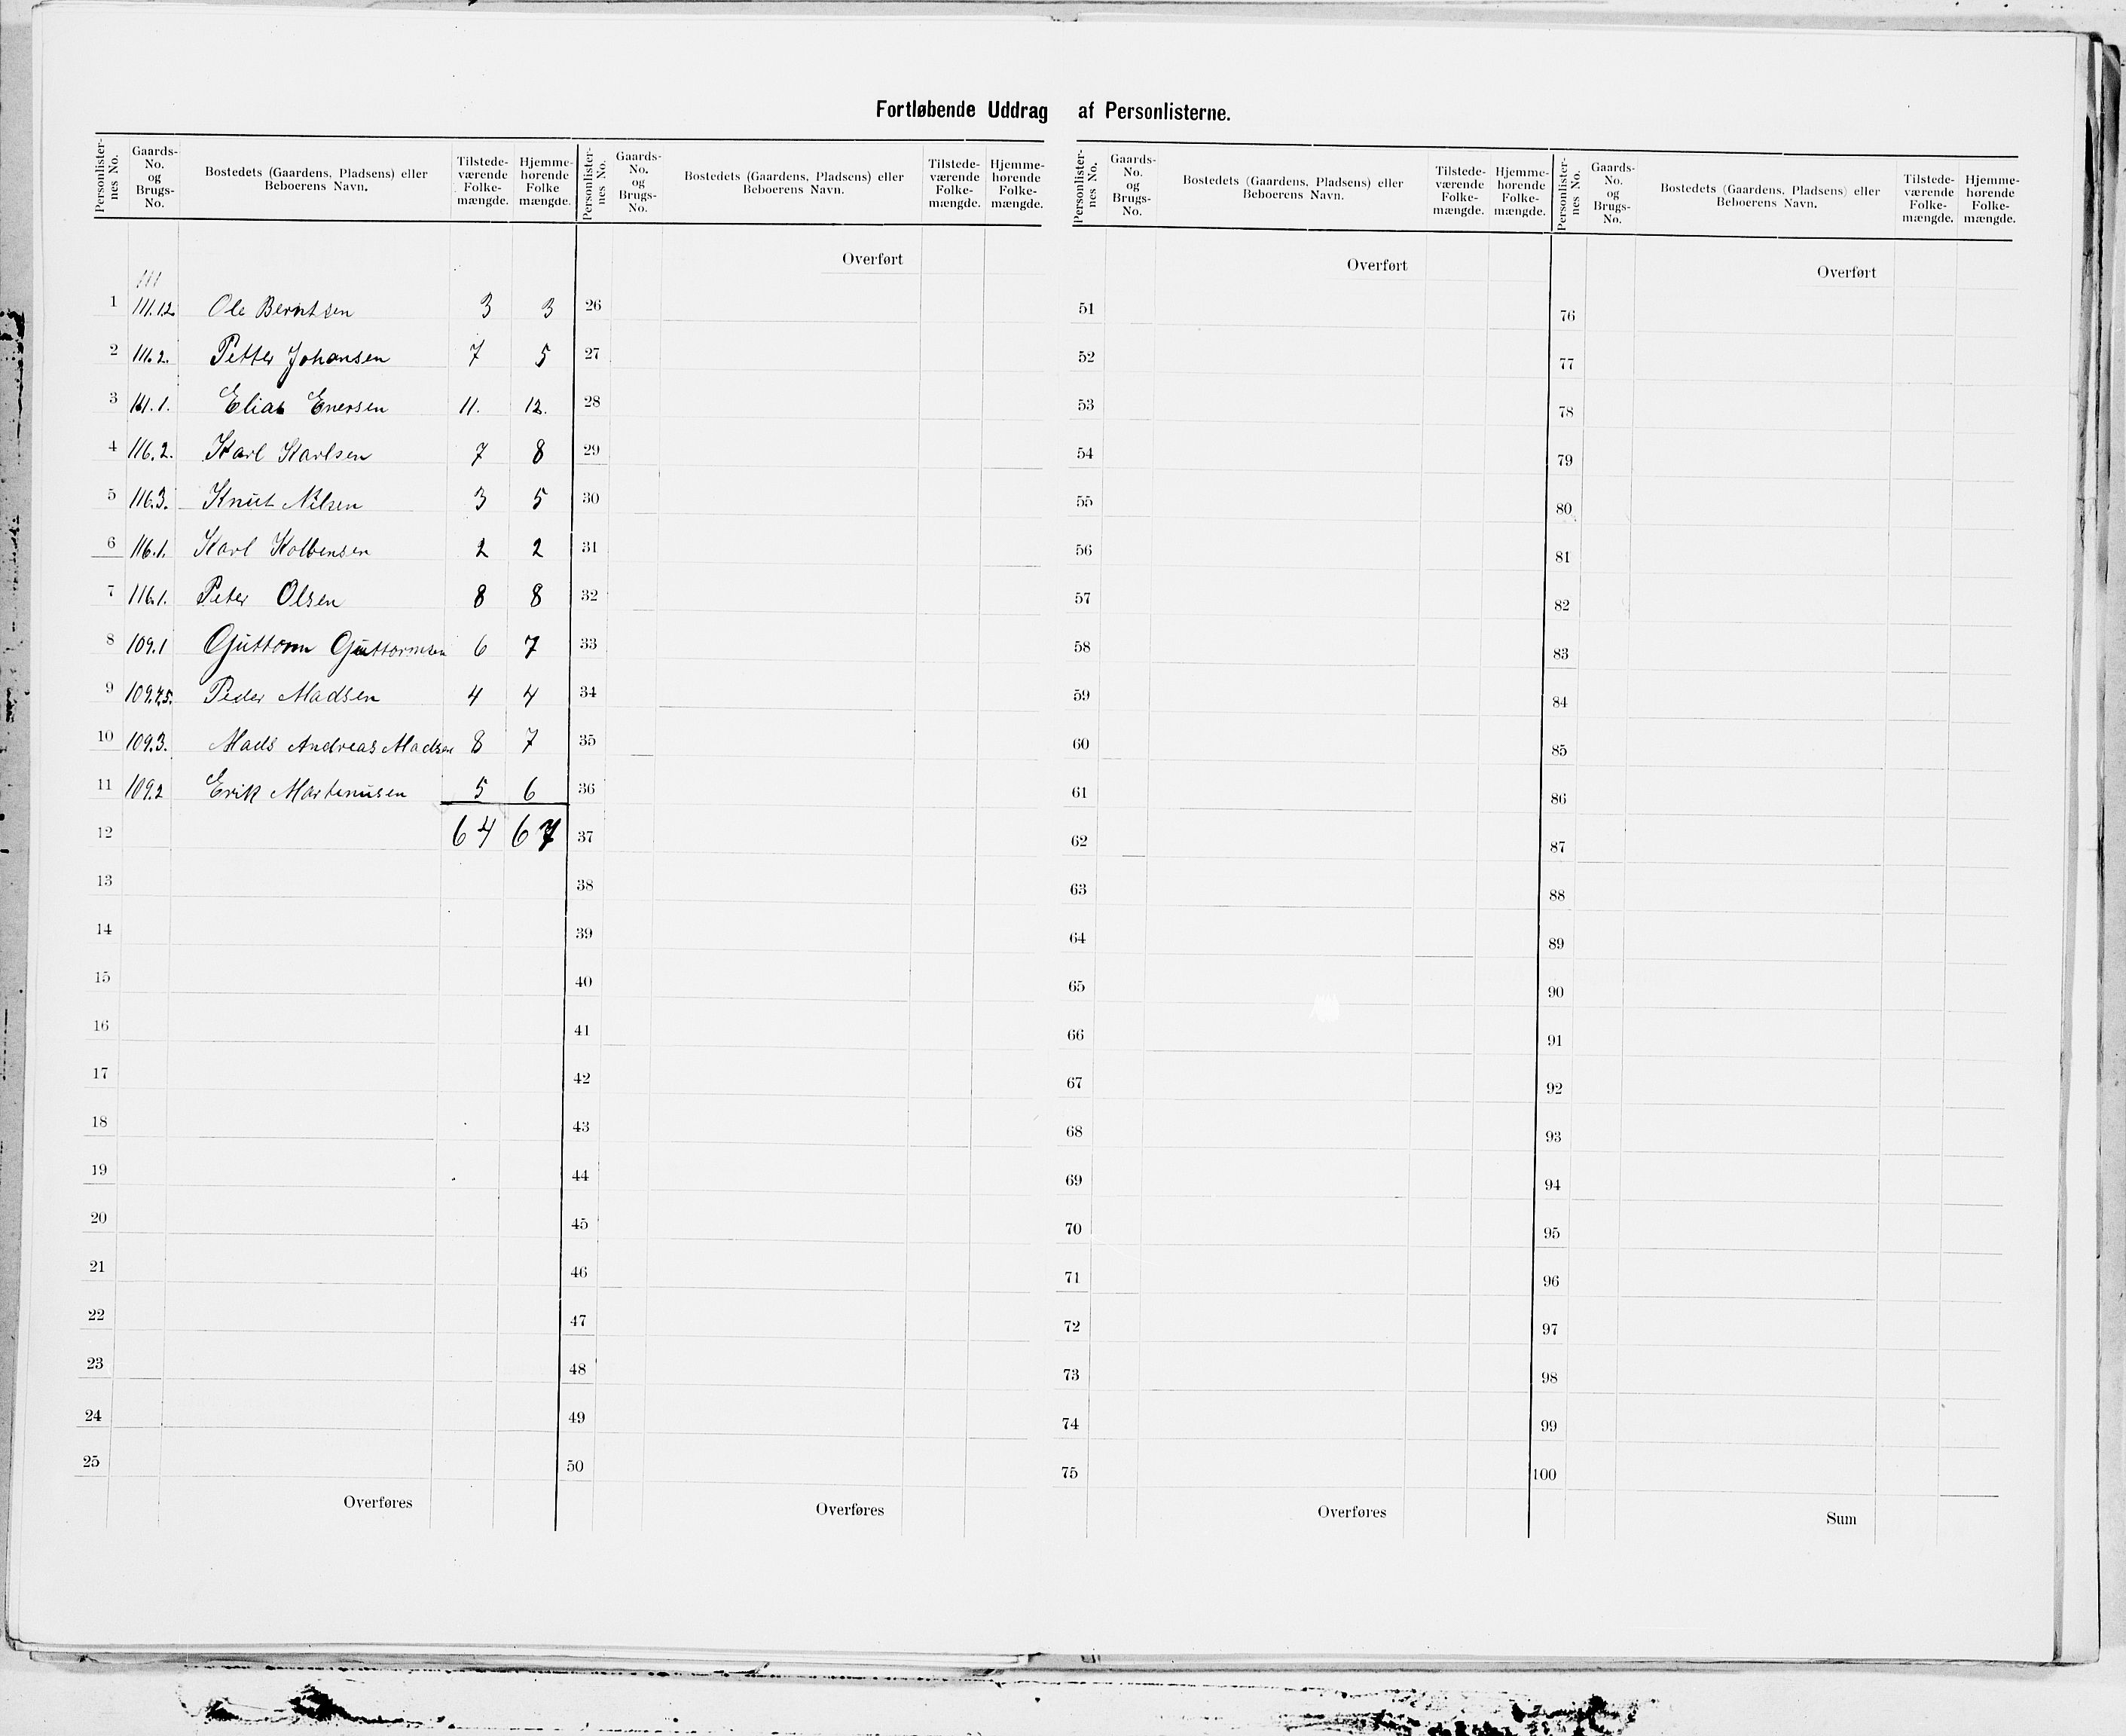 Fortløbende Uddrag af Personlisterne.
Personlister-nes No. Gaards-No. og Brugs-No. Bostedets (Gaardens, Pladsens) eller Beboerens Navn. Tilstede-værende Folke-mængde. Hjemme-hørende Folke mængde.
111
1 111.12 Ole Berntsen 3 3
2 111.2. Petter Johansen 7 5
3 111.1. Elias Enersen 11. 12.
4 116.2. Karl Karlsen 7 8
5 116.3. Knut Nilsen 3 5
6 116.1. Karl Kolbensen 2 2
7 116.1. Peter Olsen 8 8
8 109.1 Guttorm Guttormsen 6 7
9 109.4,5. Peder Madsen 4 4
10 109.3. Mads Andreas Madsen 8 7
11 109.2 Erik Martinusen 5 6
12 64 67
13
14
15
16
17
18
19
20
21
22
23
24
25
Overføres
Personlister-nes No. Gaards-No. og Brugs-No. Bostedets (Gaardens, Pladsens) eller Beboerens Navn. Tilstede-værende Folke-mængde. Hjemme-hørende Folke-mængde.
Overført
26
27
28
29
30
31
32
33
34
35
36
37
38
39
40
41
42
43
44
45
46
47
48
49
50
Overføres
Personlister-nes No. Gaards-No. og Brugs-No. Bostedets (Gaardens, Pladsens) eller Beboerens Navn. Tilstede-værende Folke-mængde. Hjemme-hørende Folke-mængde.
Overført
51
52
53
54
55
56
57
58
59
60
61
62
63
64
65
66
67
68
69
70
71
72
73
74
75
Overføres
Personlister-nes No. Gaards-No. og Brugs-No. Bostedets (Gaardens, Pladsens) eller Beboerens Navn. Tilstede-værende Folke-mængde. Hjemme-hørende Folke-mængde.
Overført
76
77
78
79
80
81
82
83
84
85
86
87
88
89
90
91
92
93
94
95
96
97
98
99
100
Sum